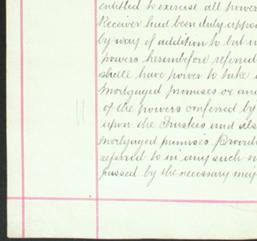 entitled to exercise all powers
Receiver had been duly appoi
by way of addition to but in
powers hereinbefore referred
shall have power to take
mortgaged premises or an
of the powers conferred by
upon the Trustees and als
mortgaged premises Provid
referred to in any such
passed by the necessary maj